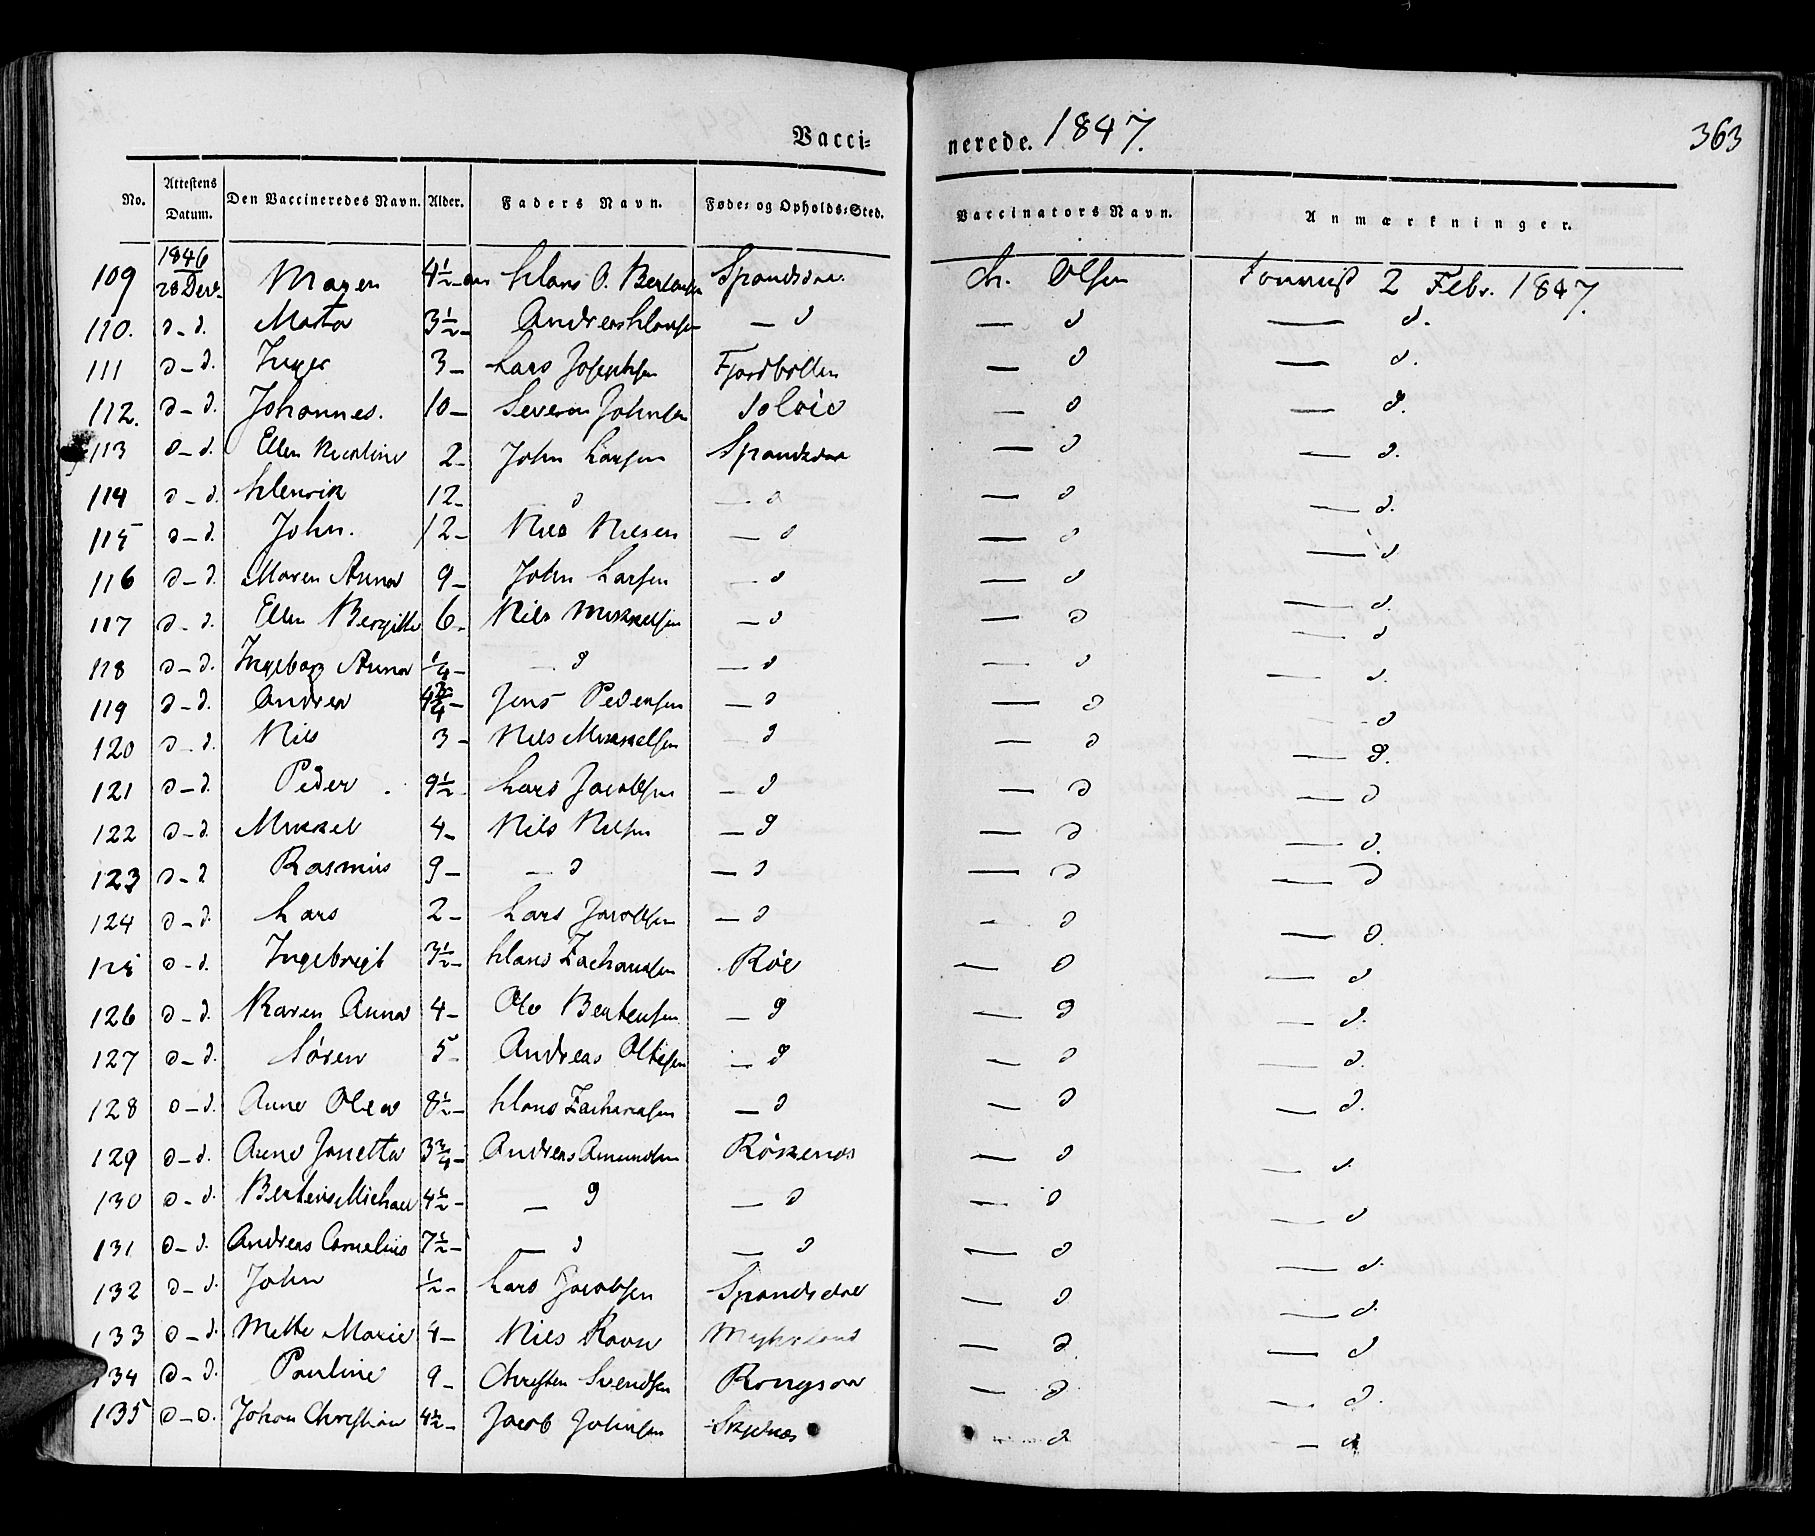 Vacci-
nerede. 1847.
363
No. Attestens Datum. Den Vaccineredes Navn. Alder. Faders Navn. Føde- og Opholds-Sted. Vaccinators Navn. Anmærkninger.
109 1846 28 Decr Maren 4½ aar Hans O. Bertensen Spandsdal Ch. Olsen 2 Febr. 1847.
110. d-d. Marta 3½- Andreas Hansen — d — d — d.
111 d-d. Inger 3- Lars Josephsen Fjordbotten — d — d.
112. d-d. Johannes. 10- Severin Johnsen — d — d.
113 d-d. Ellen Nicoline 2- John Larsen Spandsdal — d — d.
114 d-d. Henrik 12- d — d — d — d.
115 d-d. John. 12- Nils Nilsen — d — d — d
116 d-d. Maren Anna 9- John Larsen — d — d — d.
117 d-d. Ellen Bergitte 6- Nils Mikkelsen — d — d — d
118 d-d. Ingeborg Anna ¼- — d — d — d — d.
119 d-d. Andrea 4¾- Jens Pedersen — d — d — d
120 d-d. Nils 3- Nils Mikkelsen — d — d — d.
121 d-d. Peder 9½- Lars Jacobsen — d — d — d
122 d-d. Mikkel 4- Nils Nilsen — d — d — d.
123 d-d Rasmus 9- — d — d — d — d
124 d-d. Lars 2- Lars Jacobsen — d — d — d.
125 d-d. Ingebrigt 3½- Hans Zachariasen Røe — d — d
126 d-d. Karen Anna 4- Ole Bertensen — d — d — d.
127 d-d. Søren 5- Andreas Oltesen — d — d — d.
128 d-d. Anne Olea 8½- Hans Zachariasen — d — d — d.
129 d-d. Anne Jonetta 3¾- Andreas Amundsen Røkenes — d — d.
130 d-d. Berteus Michael 4½- — d — d — d — d
131 d-d. Andreas Cornelius 7½- — d — d — d — d.
132 d-d. John ½- Lars Jacobsen Spandsdal — d — d.
133 d-d. Mette Marie 4- Nils Ravn — d — d
134 d-d. Pauline 9- Christen Svendsen — d — d.
135 d-d. Johan Christian 4½- Jacob Johnsen — d — d